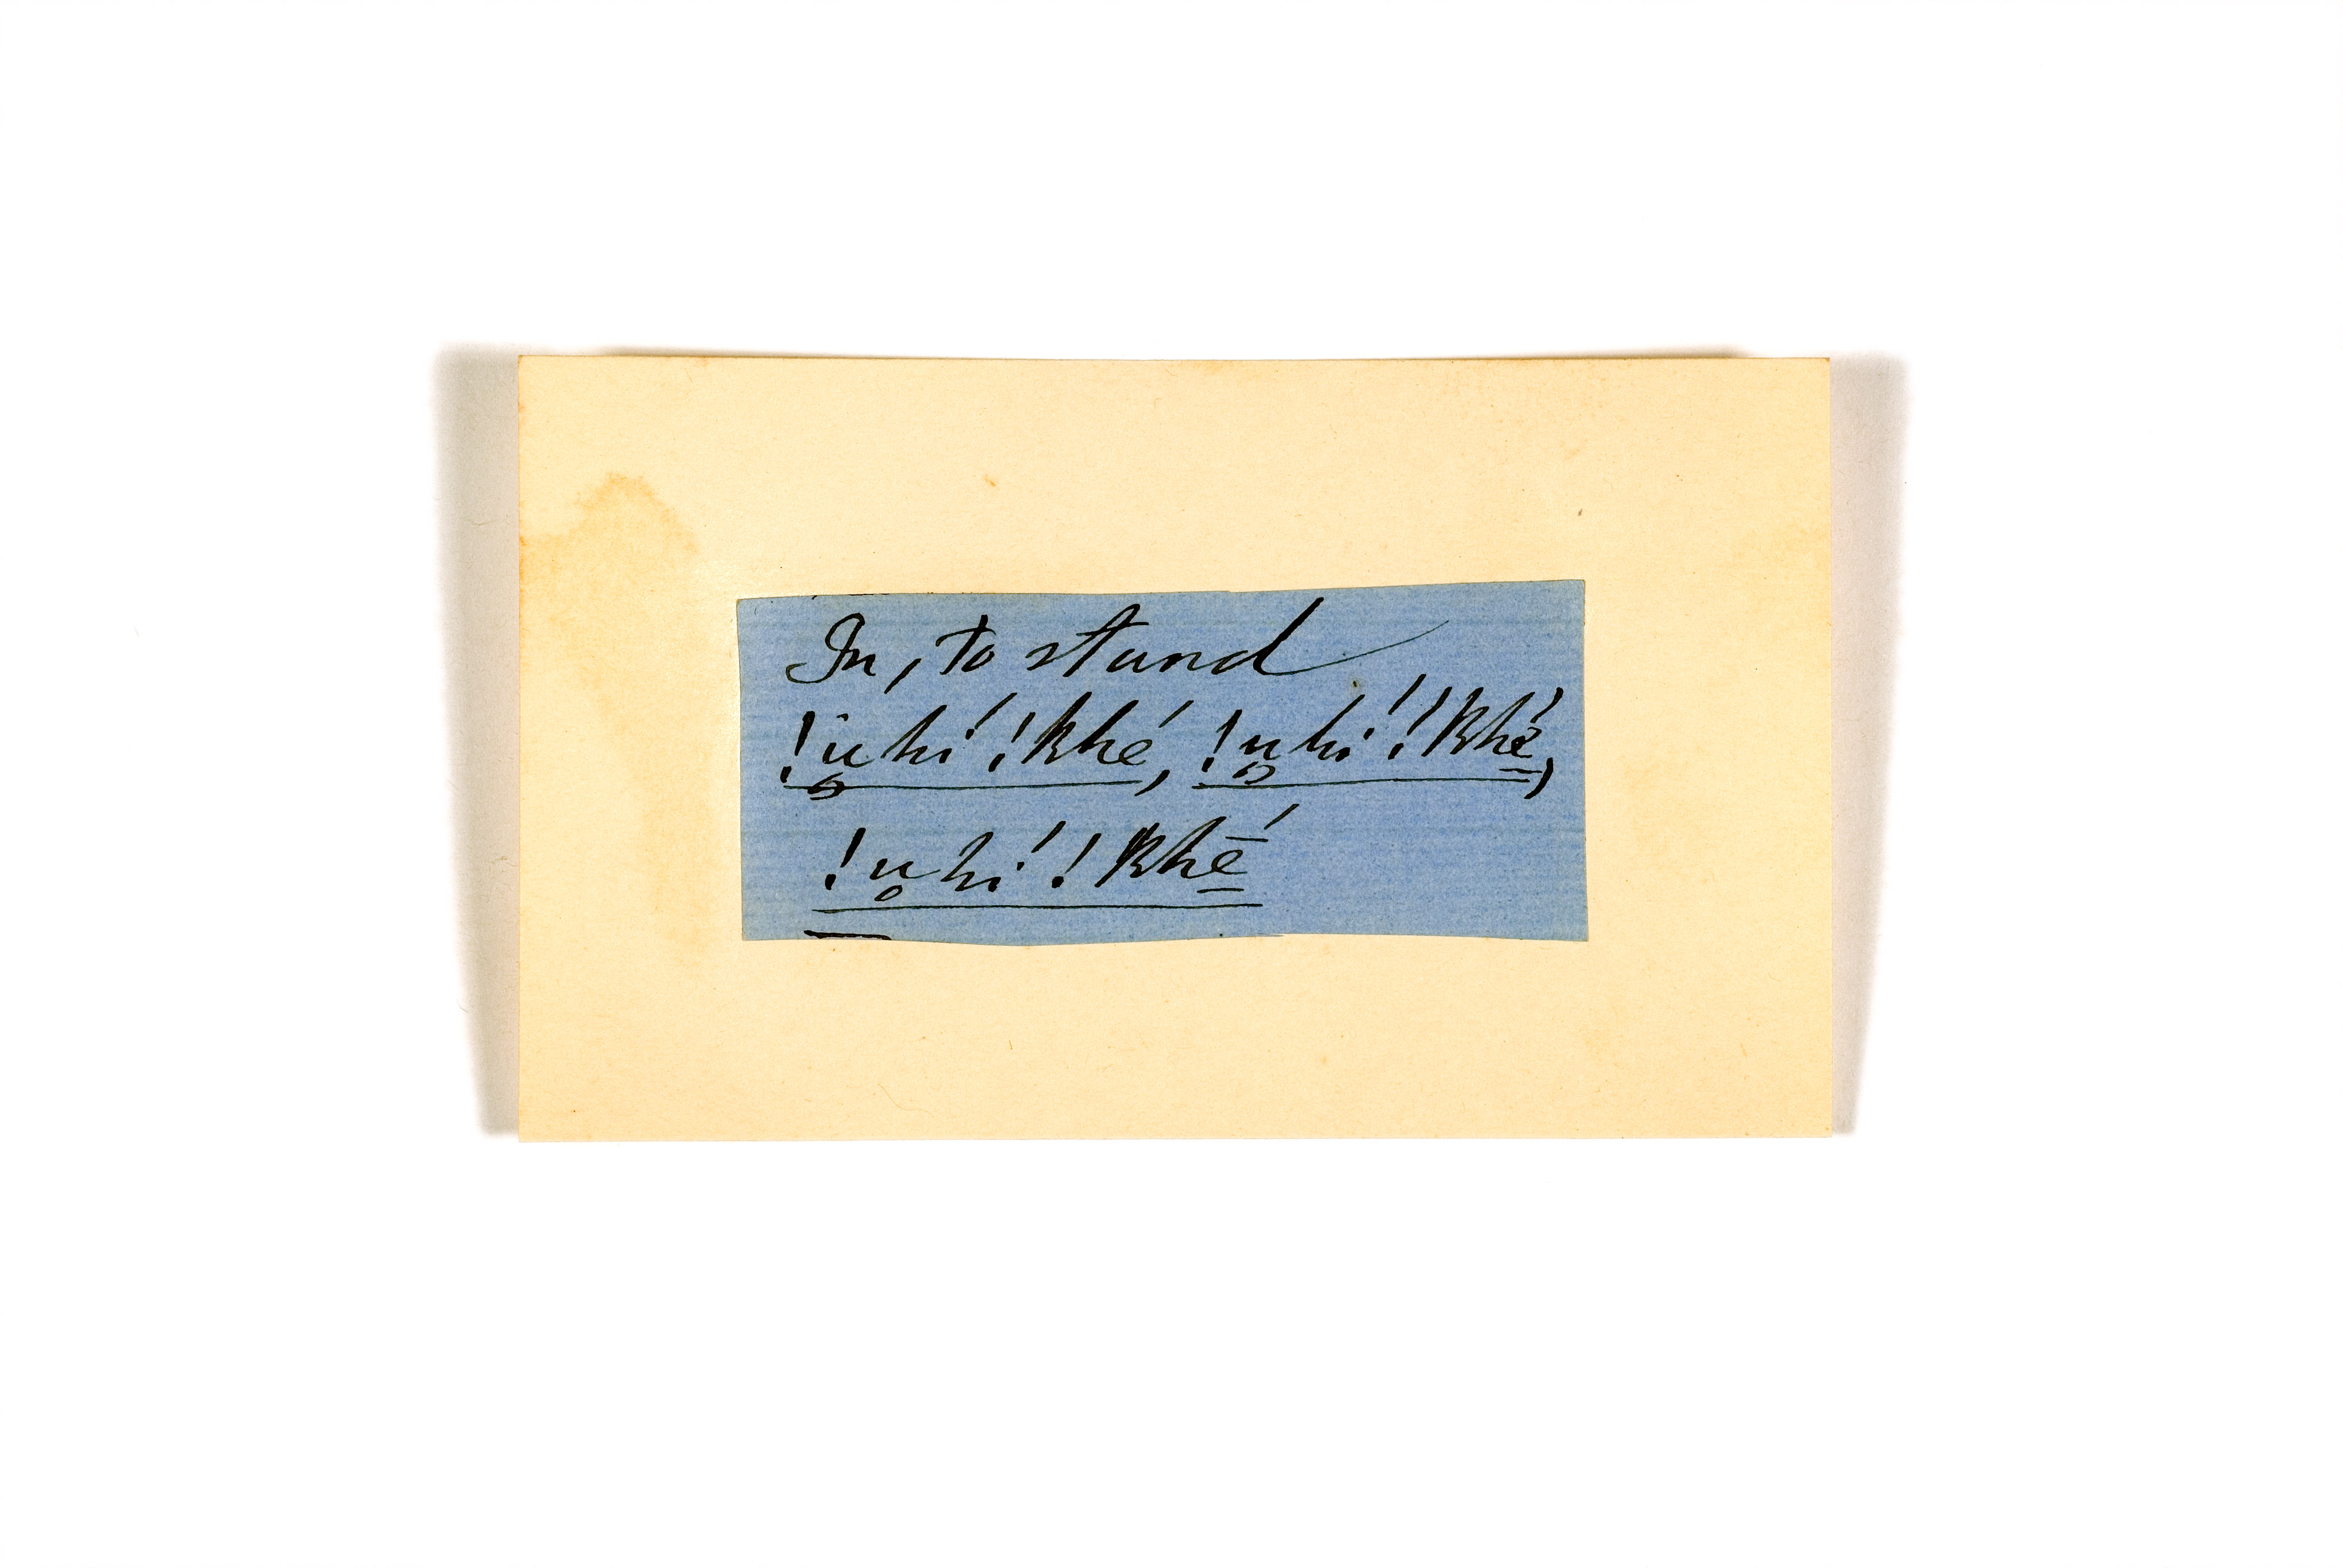 In, to stand
!ṵ̆hí !khé, !ṵhi´ !khé̱,
!ṵhi´ !khḗ̱